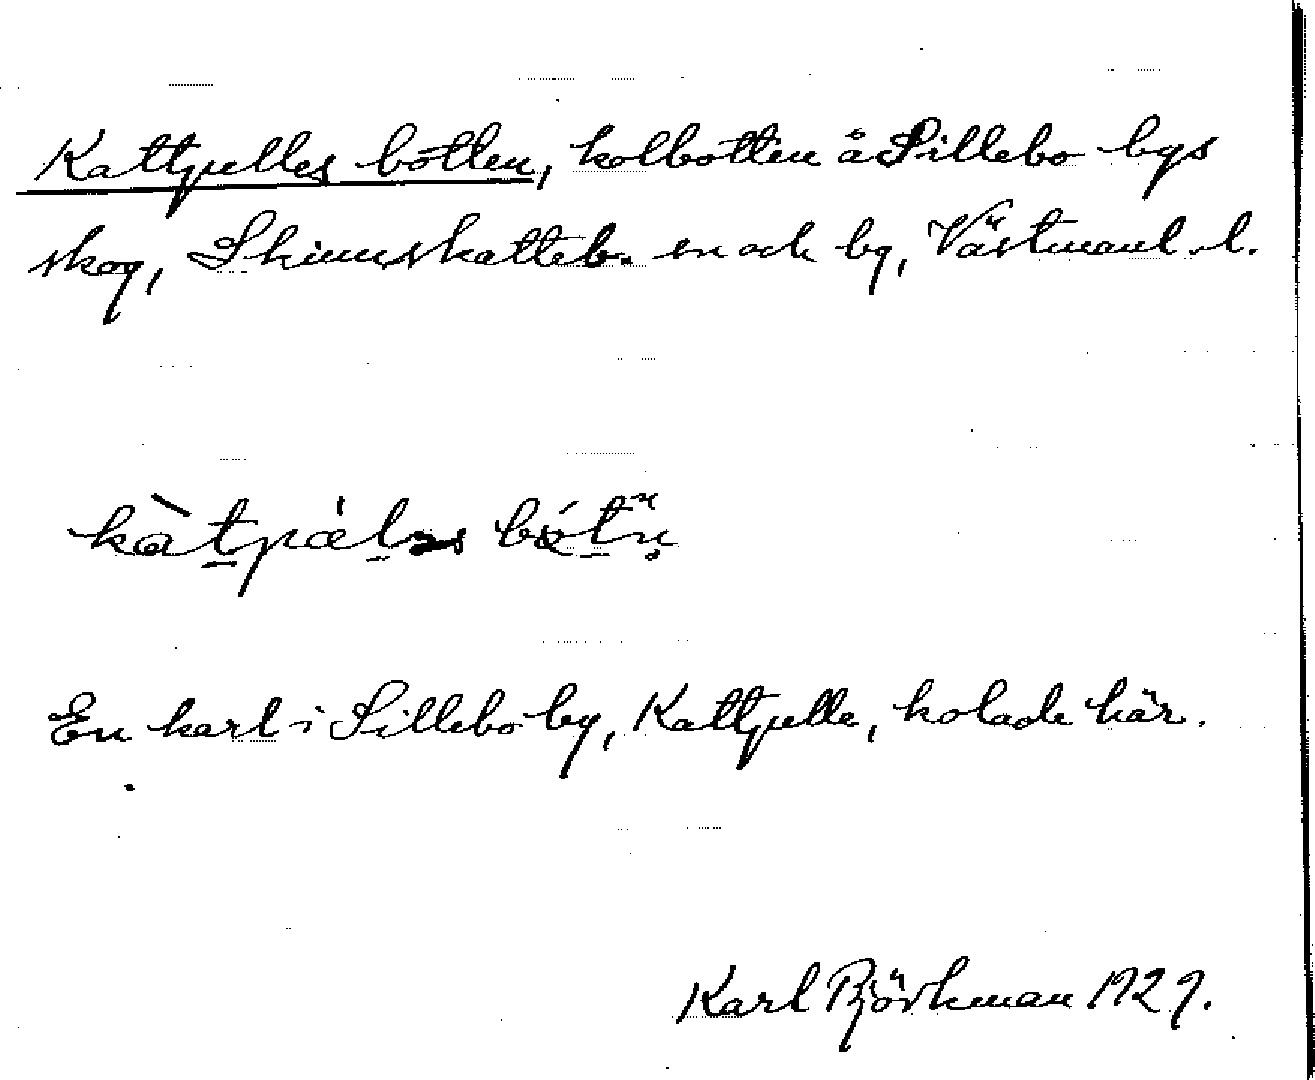 Kattpelles botten, kolbotten å Sillebo bys
skog, Skinnskatteb. sn och by, Västmanl. l.
En karl i Sillebo by, Kattpelle, kolade här.
Karl Björkman 1929.